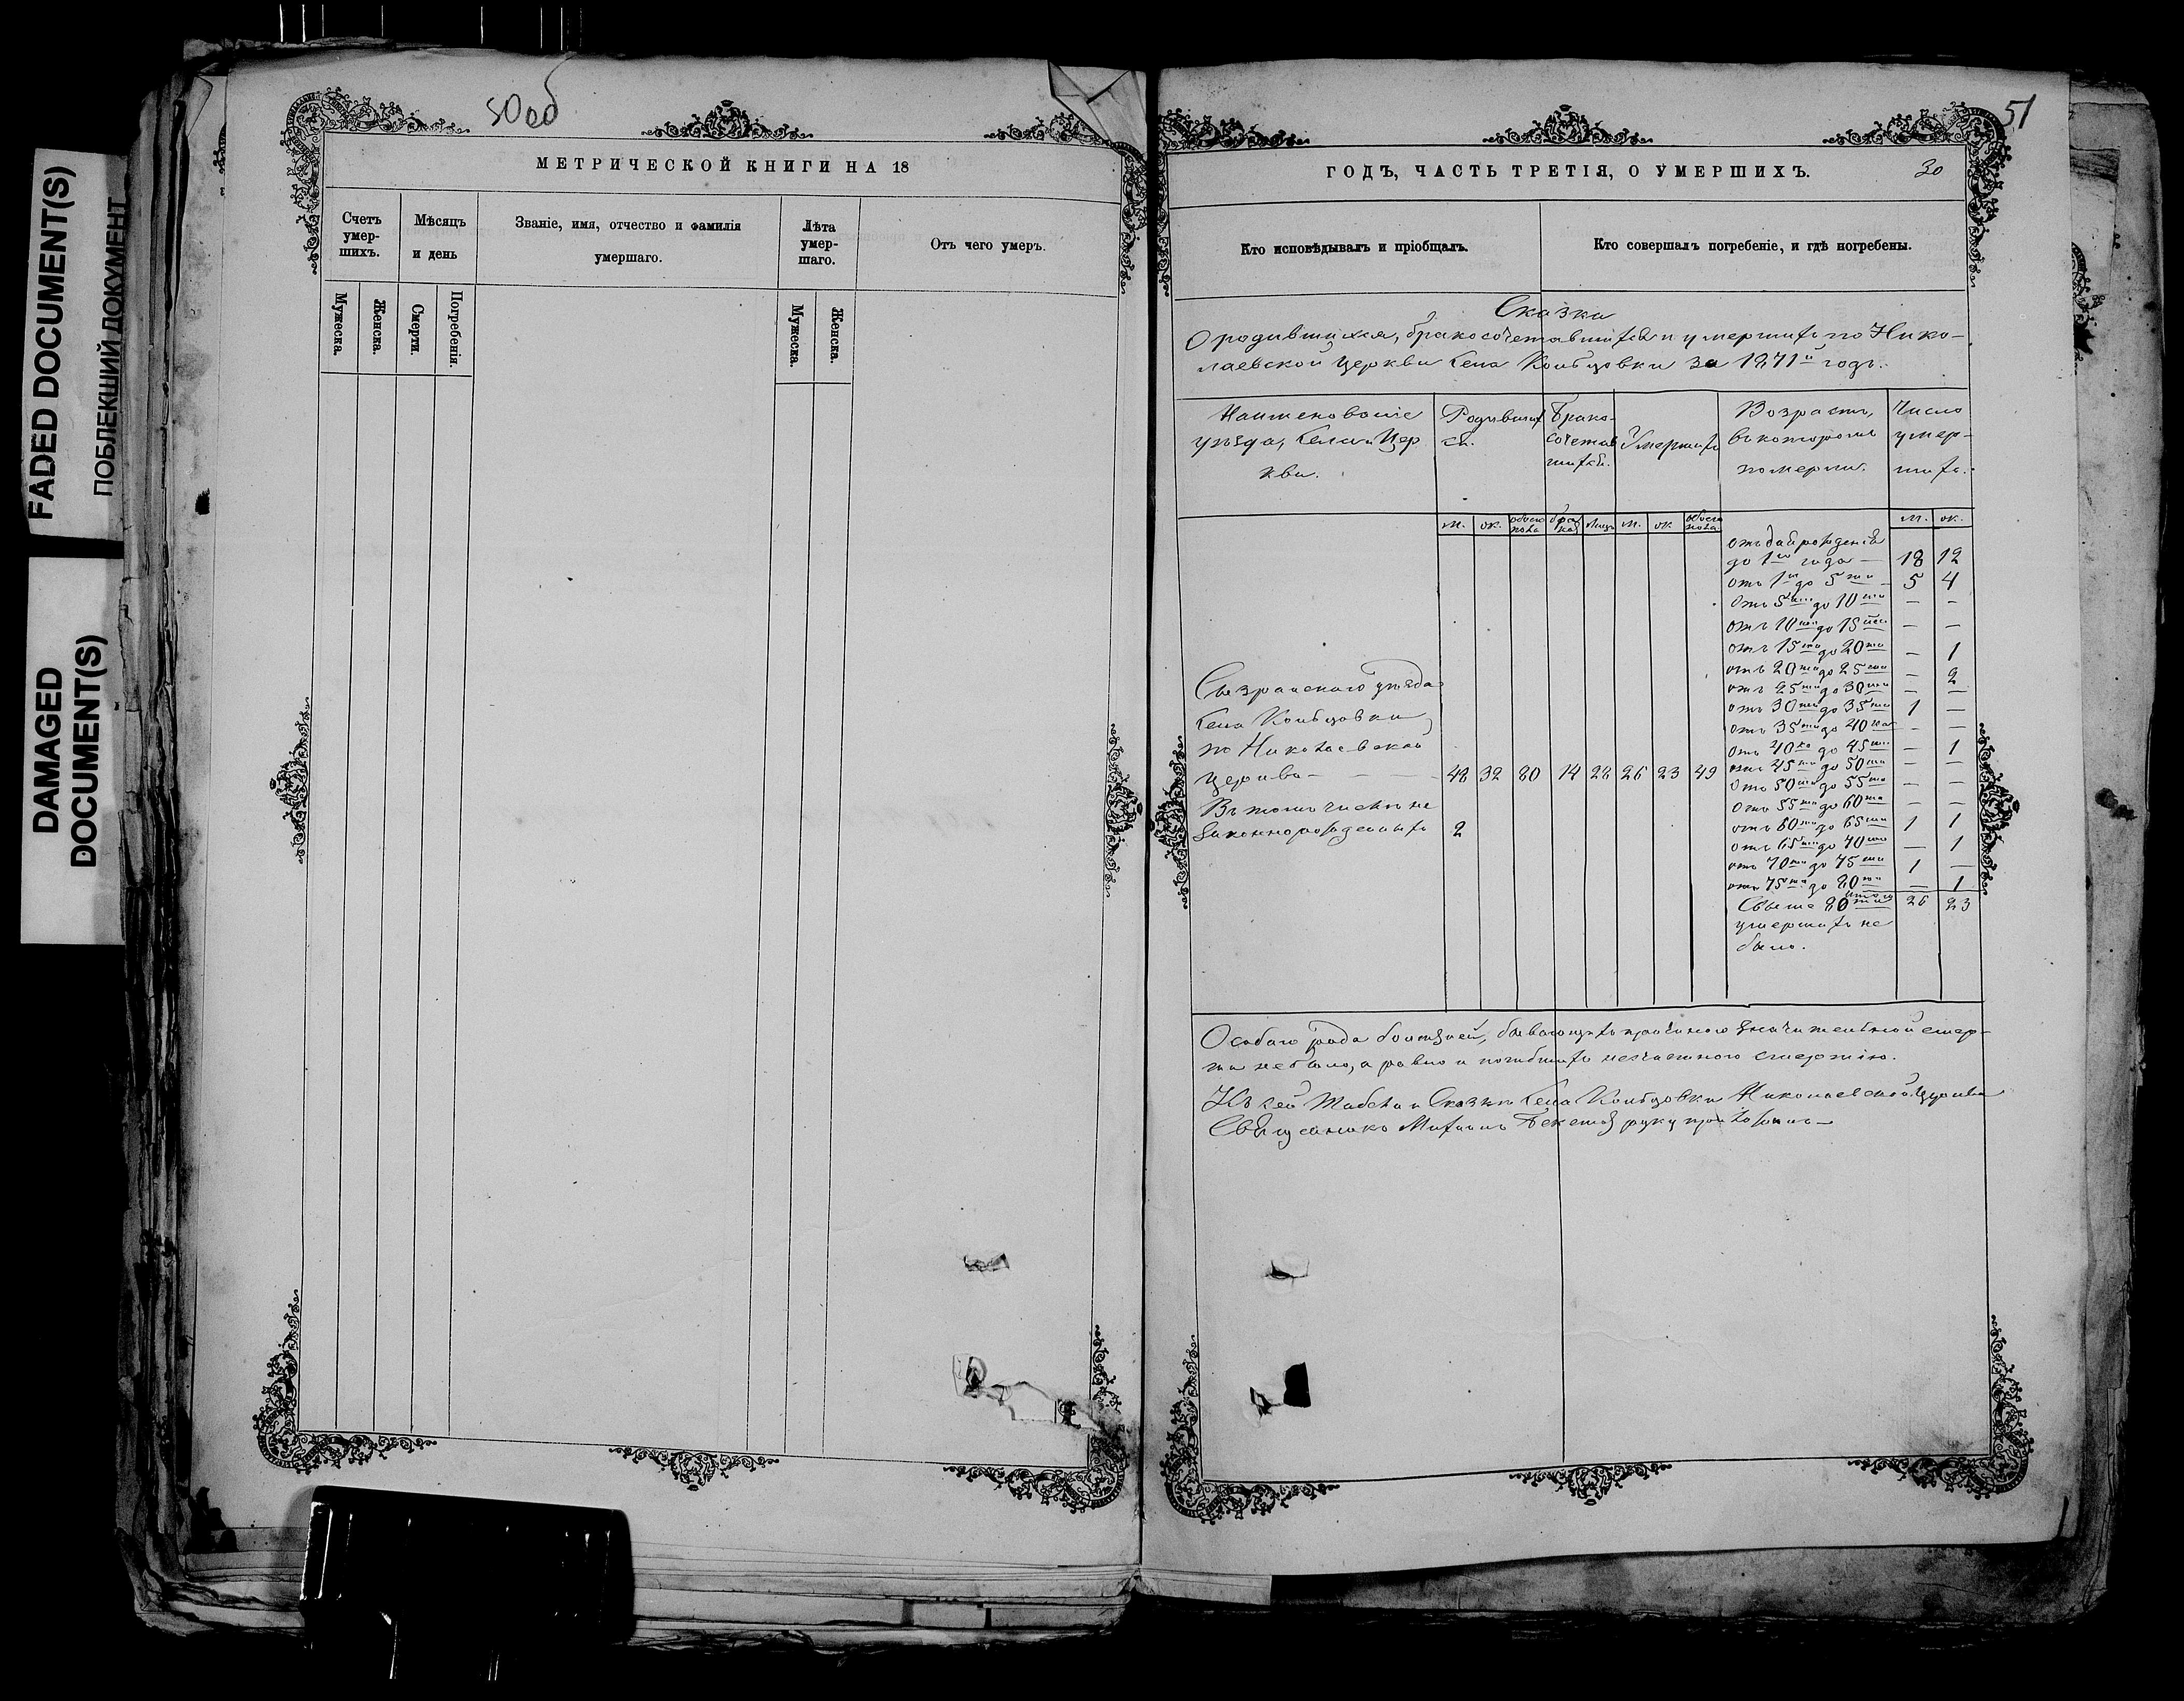 FADED DOCUMENT(S)
ПОБЛЕКШИЙ ДОКУМЕНТ
DAMAGED
DOCUMENT(S)
50 об
МЕТРИЧЕСКОЙ КНИГИ НА 18
Счетъ умер-шихъ.
Мѣсяцъ и день
Званіе, имя, отчество и фамилія умершаго.
Лѣта умер-шаго.
Отъ чего умеръ.
Мужеска.
Женска.
Смерти.
Погребенія.
Мужеска.
Женска.
51
ГОДЪ, ЧАСТЬ ТРЕТІЯ, О УМЕРШИХЪ.
30
Кто исповѣдывалъ и пріобщалъ.
Кто совершалъ погребеніе, и гдѣ погребены.
Сказка
О родившихся, бракосочетавшихся и умершихъ по Нико-
лаевской церкви села Кольцовки за 1871й годъ.
Наименованіе уѣзда, села и Цер кви.
Родивших ся.
Брако-сочетав шихся.
Умершихъ
Возрастъ, въ которомъ померли.
Число умер-шихъ.
м. ж. обоего пола браковъ лицъ м. ж. обоего пола м. ж.
отъ дня рожденія
до 1го года — 18 12
отъ 1го до 5ти — 5 4
отъ 5ти до 10ти — —
отъ 10ти до 15ти — —
отъ 15ти до 20ти — 1
отъ 20ти до 25ти — 2
отъ 25ти до 30ти — —
отъ 30ти до 35ти 1 —
отъ 35ти до 40ка — —
отъ 40ка до 45ти — 1
отъ 45ти до 50ти — —
отъ 50ти до 55ти — —
отъ 55ти до 60ти — —
отъ 60ти до 65ти 1 1
отъ 65ти до 70ти — 1
отъ 70ти до 75ти 1 —
отъ 75ти до 80ти — 1
итого 26 23
Свыше 80ти
умершихъ не
было.
Сызранскаго уѣзда
села Кольцовки
по Николаевской
церкви — 48 32 80 14 28 26 23 49
Въ томъ числѣ не
законнорожденныхъ 2
Особаго рода болѣзней, бывающихъ причиною значительной смер-
ти не было, а равно и погибшихъ несчастною смертію.
Къ сей Табели и Сказкѣ села Кольцовки Николаевской Церкви
Священникъ Михаилъ Бекетов руку приложилъ —